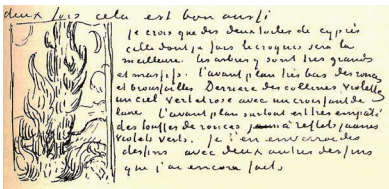 deux fois cela est bon aussi
Je crois que des deux toiles de cyprès
celle dont je fais le croquis sera la
meilleure. les arbres y sont très grands
et massifs. l'avant plan très bas des ronces
et broussailles Derrière des collines violettes
un ciel vert et rose avec un croissant de
lune. L'avant plan surtout est très empâté
des touffes de ronces à reflets jaunes
violets verts. Je t'en enverrai des
dessins avec deux autres dessins
que j'ai encore faits